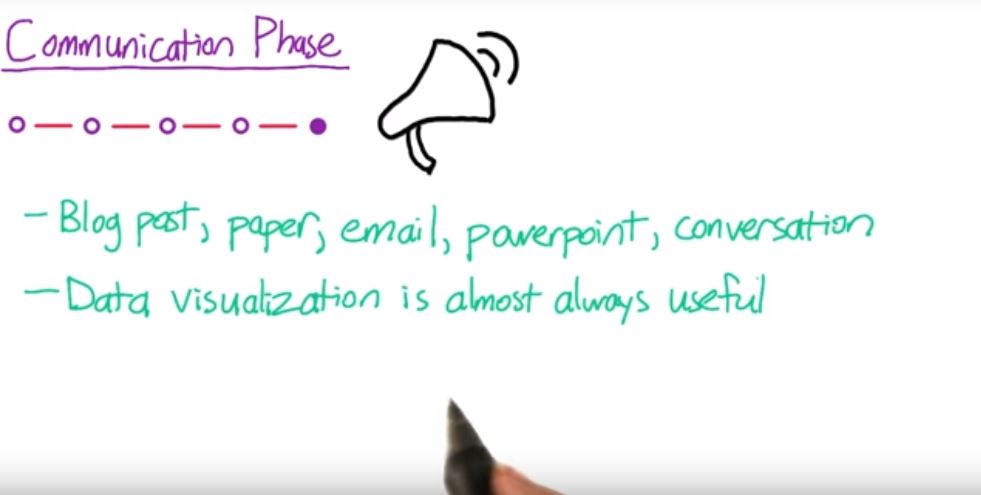 Communication Phase
- Blog post, paper, email, powerpoint, conversation
- Data visualization is almost always useful